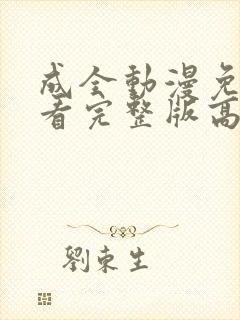 成全動漫免
看完整版高
劉東生